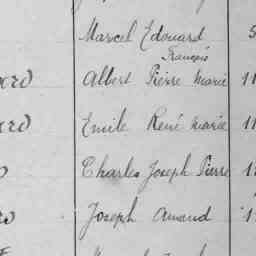 Marcel Edouard
François
Albert Pierre Marie
Emile René Marie
Charles Joseph Pierre
Joseph Amand